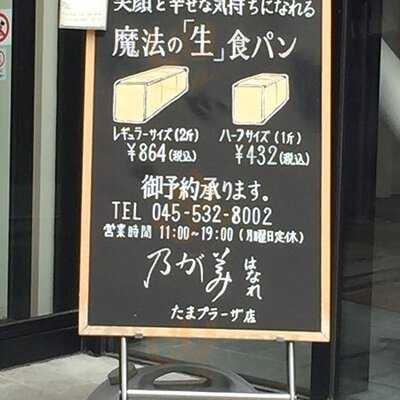 笑顔と幸せな気持ちになれる
魔法の「生」食パン
レギュラーサイズ(2斤)
¥864(税込)
ハーフサイズ(1斤)
¥432(税込)
御予約承ります。
TEL 045-532-8002
営業時間 11:00~19:00(月曜日定休)
乃が美
はなれ
たまプラーザ店